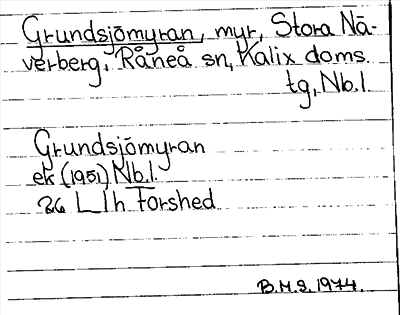 Grundsjömyran, myr, Stora Nä-
verberg, Råneå sn, Kalix doms.
tg, Nb.l.
Grundsjömyran
ek (1951) Nb.l.
26 L I h Forshed
B.M.S. 1974.